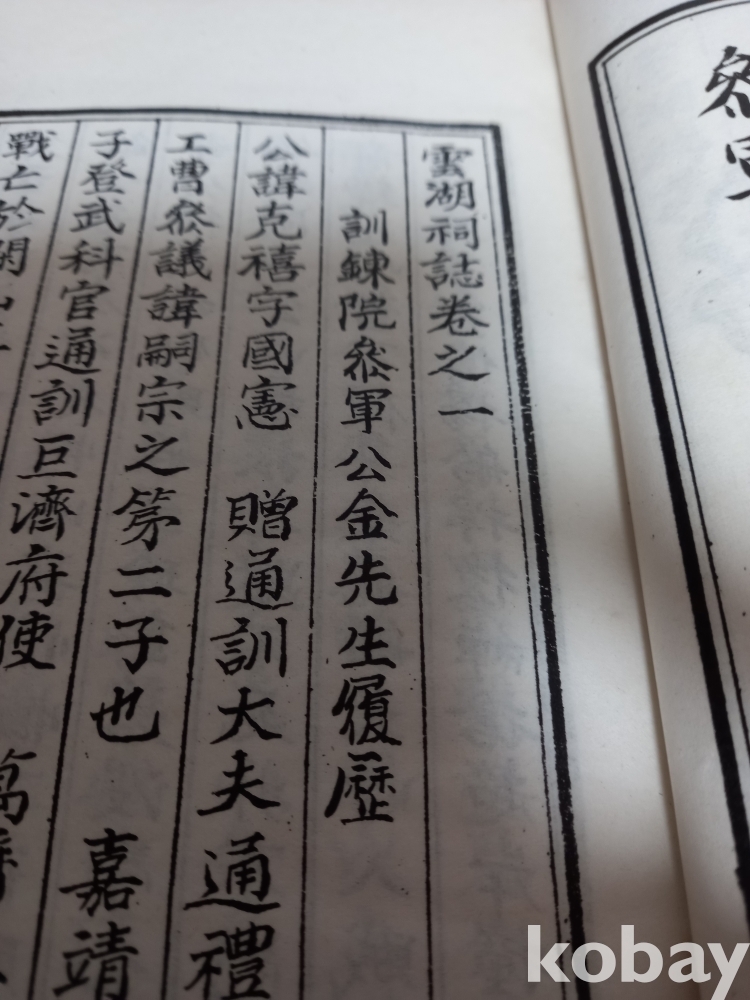 雲湖祠誌卷之一
訓鍊院叅軍公金先生履歷
公諱克禧字國憲 贈通訓大夫通禮
工曹叅議諱嗣宗之第二子也 嘉靖
子登武科官通訓巨濟府使 萬
戰亡於閑
叅軍
kobay